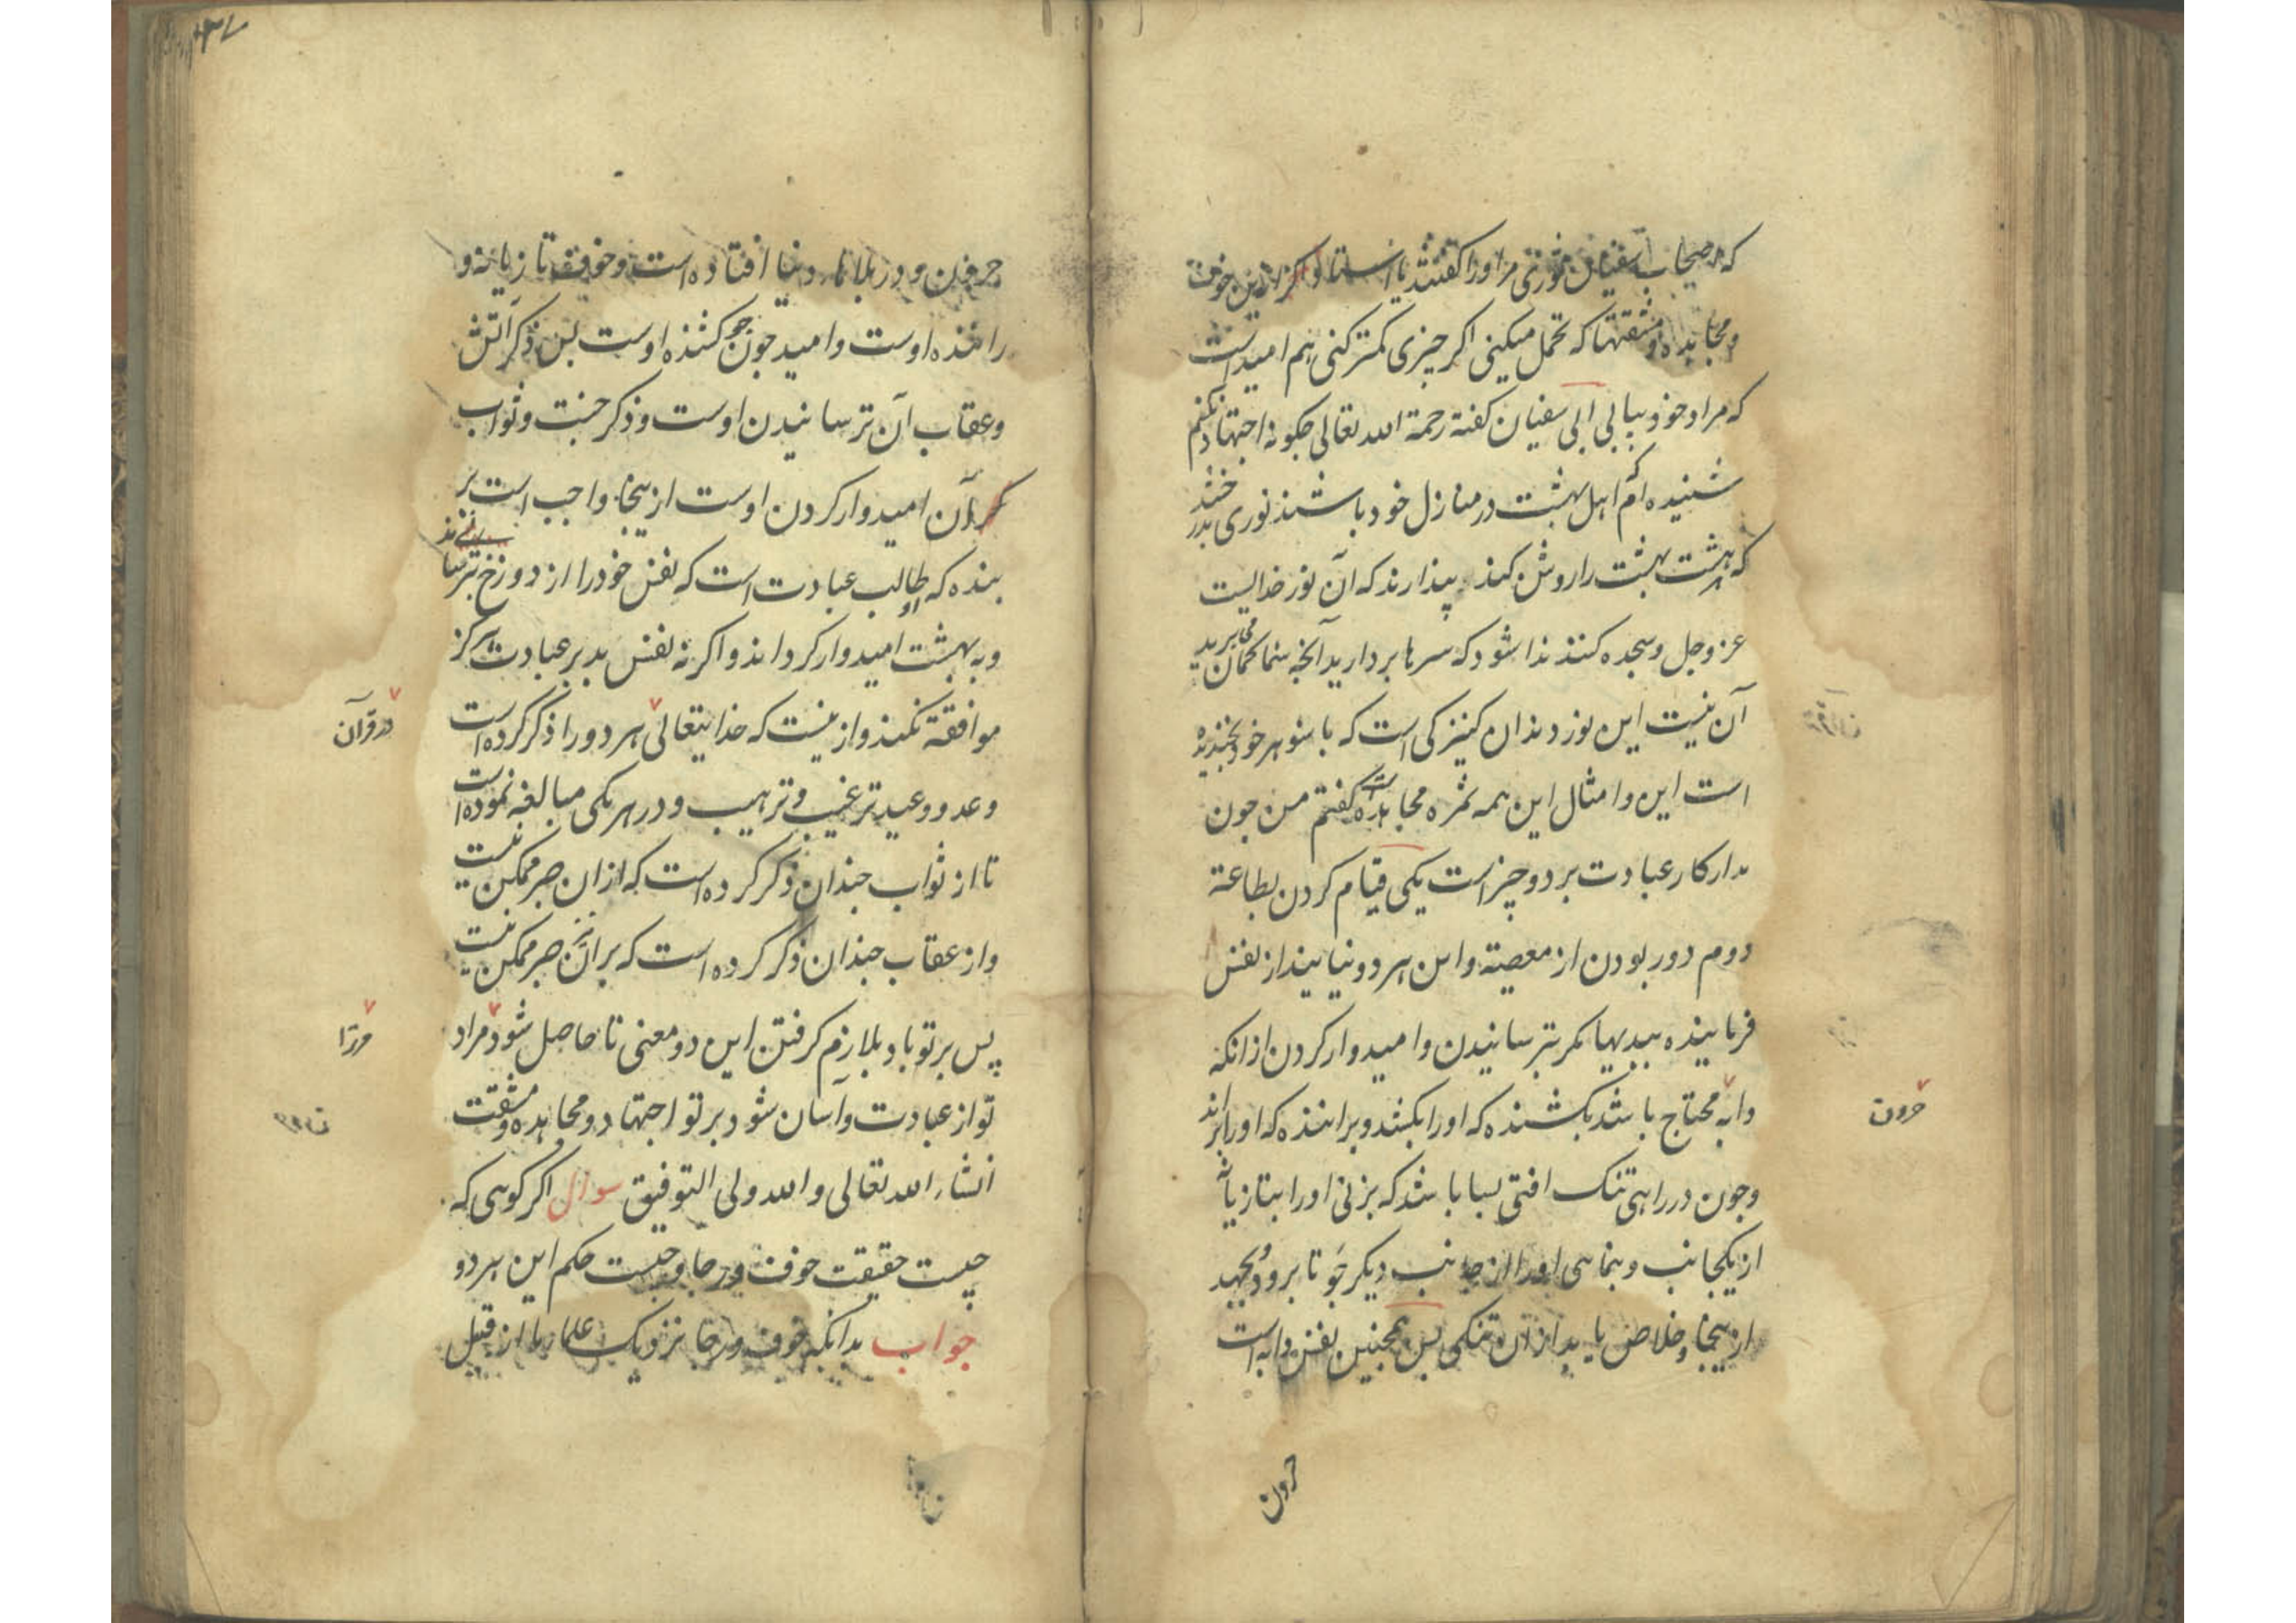 که اصحاب سفیان ثوری مر اورا کفتند یا استاد اکر ازین خوف
و مجاهده و مشقتها که تحمل میکنی اکر چیزی کمتر کنی هم امید است
که مراد خود بیابی سفیان کفته رحمة الله تعالی چکونه اجتهاد نکنم
شنیده ام که اهل بهشت در منازل خود باشند نوری بدرخشد
که هشت بهشت را روشن کند پندارند که آن نور خدایست
عز وجل و سجده کنند ندا شود که سرها بردارید آنچه شما کمان می برید
آن نیست این نور دندان کنیزکی است که با شوهر خود بخندیده
است این و امثال این همه ثمره مجاهده است کفتم من جون
مدار کار عبادت بر دو چیز است یکی قیام کردن بطاعة
دوم دور بودن از معصیة و این هر دو نیاید از نفس
فرماینده ببدیها مکر بترسانیدن و امیدوار کردن از انکه
دابه محتاج باشد بکشنده که اورا بکشد و براننده که اورا براند
حرون
وجون در راهی تنک افتی بسا باشد که بزنی اورا بتازیانه
از یکجانب و بنمایی اورا از جانب دیکر جو تا برود و بجهد
از ینجا و خلاص یابد از ان تنکی پس همچنین نفس دابه است
حرون
حرون و در بلاها دنیا افتاده است و خوف تازیانه و
راننده اوست و امید جون جو کشنده اوست پس ذکر آتش
و عقاب آن ترسانیدن اوست و ذکر جنت و ثواب
آن امیدوار کردن اوست از ینجا واجب است بر
بنده که طالب عبادت است که نفس خودرا از دوزخ بترساند
و به بهشت امیدوار کرداند و اکر نه نفس بد بر عبادت هرکز
موافقة نکند و از ینست که خدایتعالی هر دو را ذکر کرده است
در قرآن
وعد و وعید ترغیب و ترهیب و در هر یکی مبالغه نموده است
تا از ثواب چندان ذکر کرده است که از ان صبر ممکن نیست
و از عقاب چندان ذکر کرده است که بر آن نیز صبر ممکن نیست
پس بر تو باد بلازم کرفتن این دو معنی تا حاصل شود مراد
مر ترا
تو از عبادت و آسان شود بر تو اجتهاد و مجاهده و مشقت
انشاء الله تعالی و الله ولی التوفیق سوال اکر کوهی که
چیست حقیقت خوف و رجا و چیست حکم این هر دو
جواب بدانکه خوف و رجا نزدیک علماء ما از قبیل